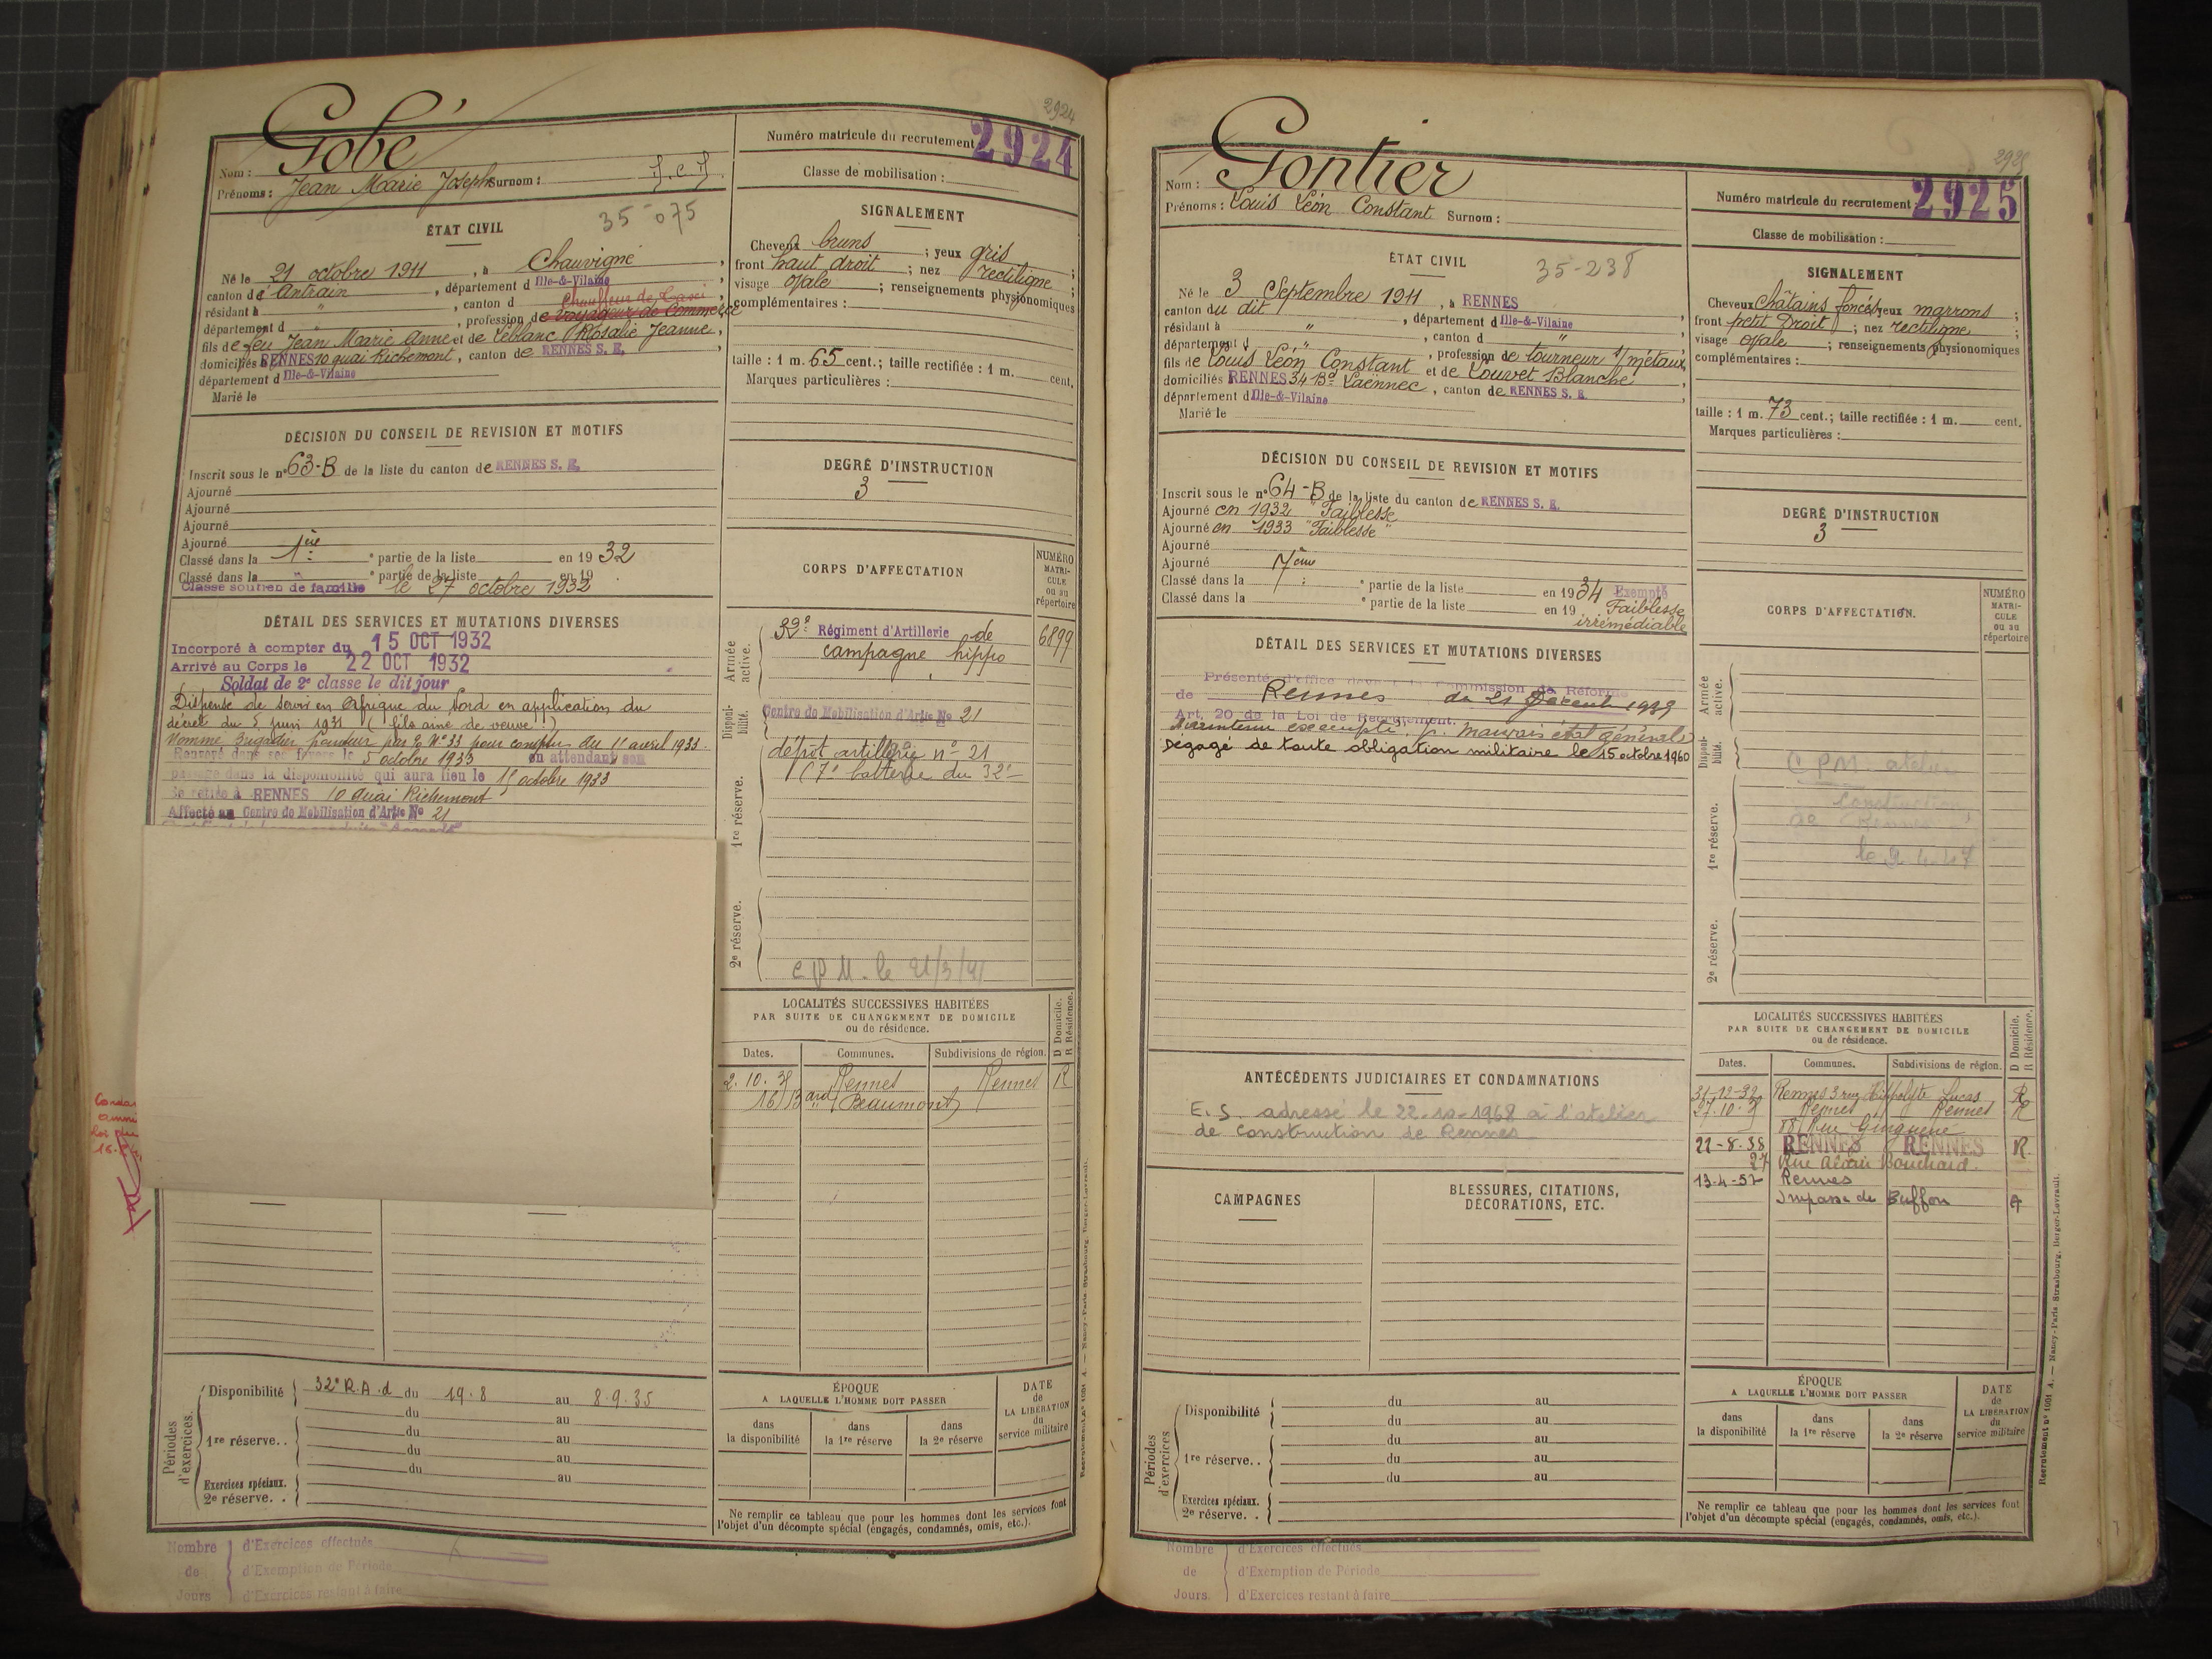 2924
Nom : Gobé
Prénoms : Jean Marie Joseph Surnom :
Numéro matricule du recrutement 2924
Classe de mobilisation :
ÉTAT CIVIL
35-075
Né le 21 octobre 1911, à Chauvigné,
canton d'Antrain, département d Ille-&-Vilaine
résidant à " , canton d
Chauffeur de Taxi
département d " , profession de voyageur de Commerce
fils de feu Jean Marie Anne et de Leblanc Rosalie Jeanne,
domiciliés RENNES 10 quai Richemont, canton de RENNES S. E.
département d Ille-&-Vilaine
Marié le
SIGNALEMENT
Cheveux bruns ; yeux gris ;
front haut droit ; nez rectiligne ;
visage ovale ; renseignements physionomiques
complémentaires :
taille : 1 m. 65 cent.; taille rectifiée : 1 m. cent.
Marques particulières :
DÉCISION DU CONSEIL DE REVISION ET MOTIFS
Inscrit sous le n° 63-B de la liste du canton de RENNES S. E.
Ajourné
Ajourné
Ajourné
Ajourné
Classé dans la 1ère partie de la liste en 19 32
Classé dans la " partie de la liste en 19
Classé soutien de famille le 27 octobre 1932
DEGRÉ D'INSTRUCTION
3
DÉTAIL DES SERVICES ET MUTATIONS DIVERSES
Incorporé à compter du 15 OCT 1932
Arrivé au Corps le 22 OCT 1932
Soldat de 2e classe le dit jour
Dispensé de servir en Afrique du Nord en application du
décret du 5 juin 1931 (fils ainé de veuve.)
Nommé Brigadier pour compter du 11 avril 1933.
Renvoyé dans ses foyers le 5 octobre 1933 en attendant son
passage dans la disponibilité qui aura lieu le 15 octobre 1933
Se retire à RENNES 10 Quai Richemont
Affecté au Centre de Mobilisation d'Artie No 21
CORPS D'AFFECTATION
NUMÉRO MATRICULE ou au répertoire
Armée active.
32e Régiment d'Artillerie de
campagne hippo
6899
Disponibilité.
Centre de Mobilisation d'Artie No 21
1re réserve.
dépot artillerie n° 21
(7e batterie du 32e
2e réserve.
C P M. le 21/3/41
LOCALITÉS SUCCESSIVES HABITÉES
PAR SUITE DE CHANGEMENT DE DOMICILE
ou de résidence.
D Domicile.
R Résidence.
Dates. Communes. Subdivisions de région.
Rennes Rennes R
Beaumont
Périodes d'exercices.
Disponibilité 32e R.A.d du 19.8 au 8.9.35
du au
1re réserve.. du au
du au
du au
Exercices spéciaux.
2e réserve. .
ÉPOQUE
A LAQUELLE L'HOMME DOIT PASSER
dans la disponibilité
dans la 1re réserve
dans la 2e réserve
DATE de LA LIBÉRATION du service militaire
Ne remplir ce tableau que pour les hommes dont les services font
l'objet d'un décompte spécial (engagés, condamnés, omis, etc.).
Nombre d'Exercices effectués
de d'Exemption de Période
Jours d'Exercices restant à faire
2925
Nom : Gontier
Prénoms : Louis Léon Constant Surnom :
Numéro matricule du recrutement : 2925
Classe de mobilisation :
ÉTAT CIVIL
35-238
Né le 3 Septembre 1911, à RENNES
canton du dit, département d Ille-&-Vilaine
résidant à " , canton d "
département d , profession de tourneur s/métaux,
fils de Louis Léon Constant et de Louvet Blanche
domiciliés RENNES 34 Bd Laënnec, canton de RENNES S. E.
département d Ille-&-Vilaine
Marié le
SIGNALEMENT
Cheveux châtains foncés yeux marrons ;
front petit Droit ; nez rectiligne ;
visage ovale ; renseignements physionomiques
complémentaires :
taille : 1 m. 73 cent.; taille rectifiée : 1 m. cent.
Marques particulières :
DÉCISION DU CONSEIL DE REVISION ET MOTIFS
Inscrit sous le n° 64-B de la liste du canton de RENNES S. E.
Ajourné en 1932 "Faiblesse
Ajourné en 1933 "Faiblesse"
Ajourné
Ajourné
Classé dans la 7ème partie de la liste en 1934 Exempté
Classé dans la partie de la liste en 19 Faiblesse
irrémédiable
DEGRÉ D'INSTRUCTION
3
DÉTAIL DES SERVICES ET MUTATIONS DIVERSES
Présenté d'office devant la Commission de Réforme
de Rennes du 21 Décemb 1939
Art. 20 de la Loi de Recrutement.
Maintenu exempté. p. mauvais état général
Dégagé de toute obligation militaire le 15 octobre 1960
CORPS D'AFFECTATION.
NUMÉRO MATRICULE ou au répertoire
Armée active.
Disponibilité.
C P M atelier
construction
de Rennes
1re réserve.
2e réserve.
ANTÉCÉDENTS JUDICIAIRES ET CONDAMNATIONS
E. S. adressé le 22-10-1968 à l'atelier
de construction de Rennes
CAMPAGNES
BLESSURES, CITATIONS,
DÉCORATIONS, ETC.
LOCALITÉS SUCCESSIVES HABITÉES
PAR SUITE DE CHANGEMENT DE DOMICILE
ou de résidence.
D Domicile.
R Résidence.
Dates. Communes. Subdivisions de région.
Rennes 3 rue Hippolyte Lucas R
Rennes Rennes R
88 Rue Ginguené
22-8-38 RENNES RENNES R
27 Rue Alain Bouchard.
13-4-52 Rennes
Impasse de Buffon
Périodes d'exercices
Disponibilité du au
du au
1re réserve. . du au
du au
du au
Exercices spéciaux.
2e réserve. .
ÉPOQUE
A LAQUELLE L'HOMME DOIT PASSER
dans la disponibilité
dans la 1re réserve
dans la 2e réserve
DATE de LA LIBÉRATION du service militaire
Ne remplir ce tableau que pour les hommes dont les services font
l'objet d'un décompte spécial (engagés, condamnés, omis, etc.).
Recrutement n° 1601 A. — Nancy-Paris, Strasbourg, Berger-Levrault.
Nombre d'Exercices effectués
de d'Exemption de Période
Jours d'Exercices restant à faire